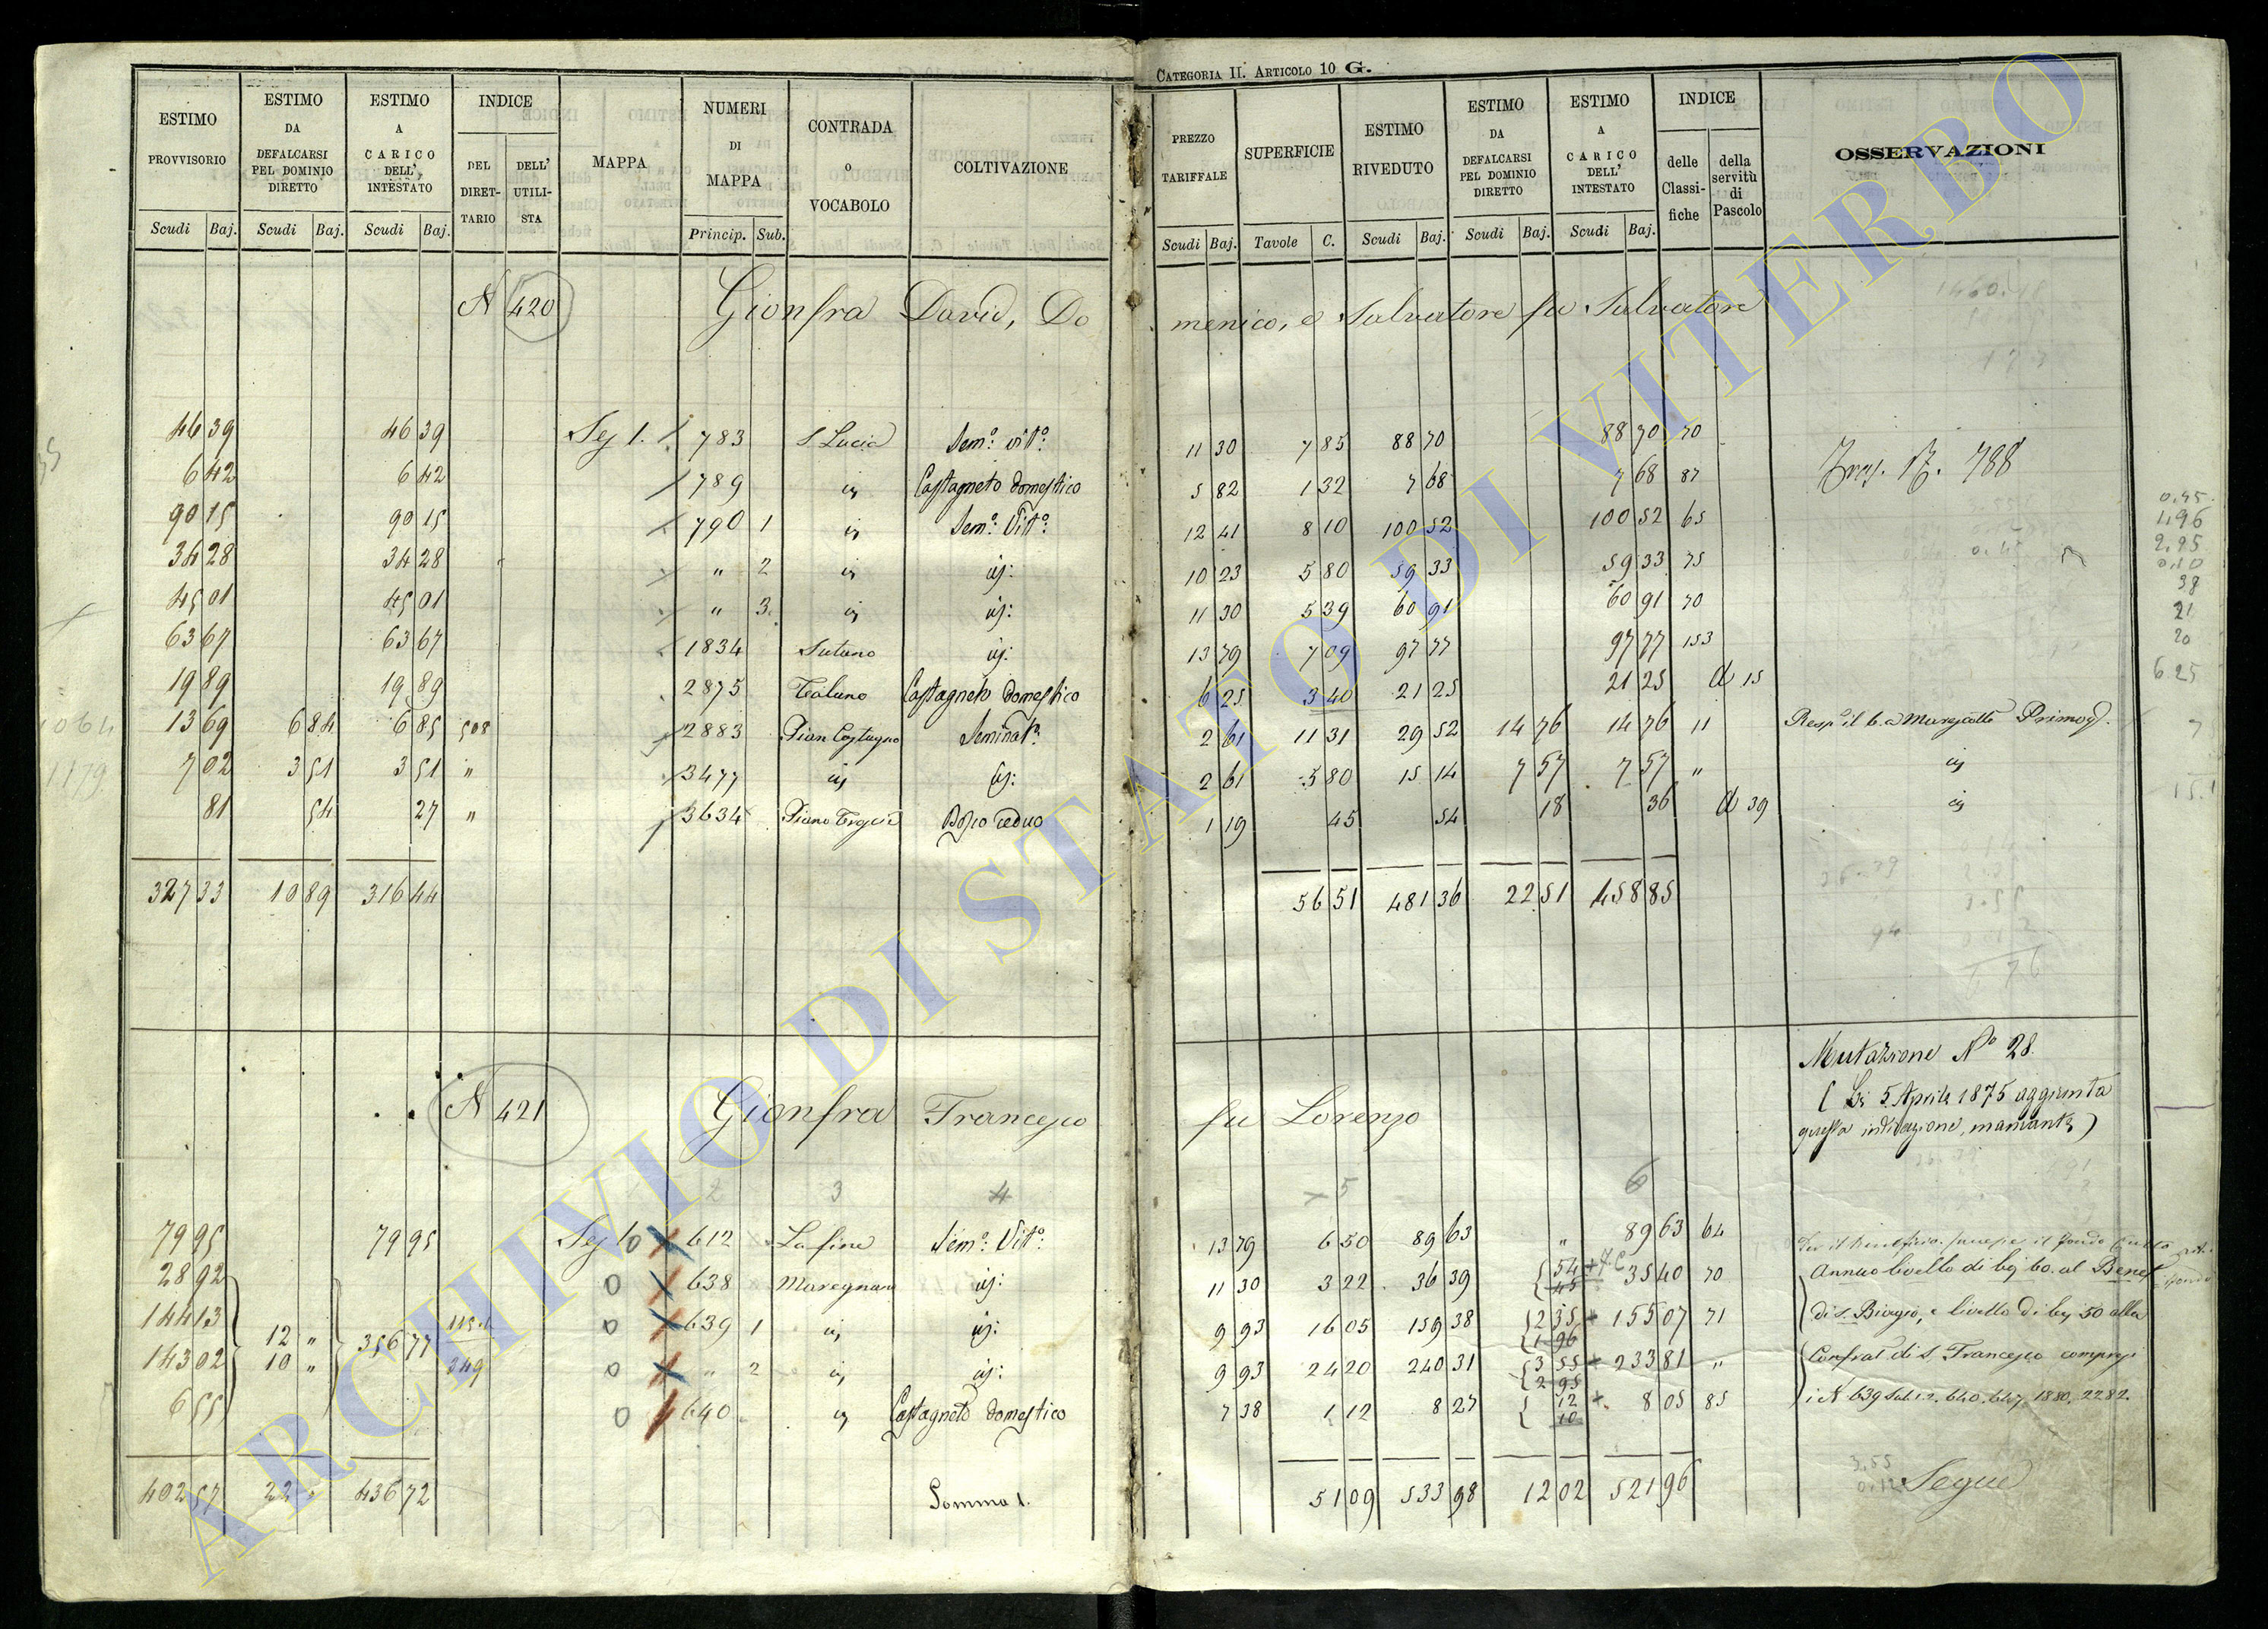 CATEGORIA II. ARTICOLO 10 G.
ESTIMO PROVVISORIO Scudi Baj.
ESTIMO DA DEFALCARSI PEL DOMINIO DIRETTO Scudi Baj.
ESTIMO A CARICO DELL' INTESTATO Scudi Baj.
INDICE DEL DIRETTARIO DELL' UTILISTA
MAPPA
NUMERI DI MAPPA Princip. Sub.
CONTRADA o VOCABOLO
COLTIVAZIONE
PREZZO TARIFFALE Scudi Baj.
SUPERFICIE Tavole C.
ESTIMO RIVEDUTO Scudi Baj.
ESTIMO DA DEFALCARSI PEL DOMINIO DIRETTO Scudi Baj.
ESTIMO A CARICO DELL' INTESTATO Scudi Baj.
INDICE delle Classifiche della servitù di Pascolo
OSSERVAZIONI
N 420 Gionfra David, Domenico, e Salvatore fu Salvatore
46 39 46 39 Sez 1. 783 S. Lucia Sem.o vit.o 11 30 7 85 88 70 88 70 70 Tras. N. 788
6 42 6 42 789 id Castagneto domestico 5 82 1 32 7 68 7 68 87
90 15 90 15 790 1 id Sem.o Vit.o 12 41 8 10 100 52 100 52 65
34 28 34 28 " 2 id id: 10 23 5 80 59 33 59 33 75
45 01 45 01 " 3 id id: 11 30 5 39 60 91 60 91 70
63 67 63 67 1834 Sutano id: 13 79 7 09 97 77 97 77 153
19 89 19 89 2875 Castagneto domestico 6 25 3 40 21 25 21 25 d 15
13 69 6 84 6 85 508 2883 Pian Castagno Seminat. 2 61 11 31 29 52 14 76 14 76 11
7 02 3 51 3 51 " 3477 id id: 2 61 5 80 15 14 7 57 7 57 " id
81 54 27 " 3634 Bosco ceduo 1 19 45 54 18 36 d 39 id
327 33 10 89 316 44 56 51 481 36 22 51 458 85
Mutazione No 28.
(Li 5 Aprile 1875 aggiunta
N 421 Gionfra Francesco fu Lorenzo
questa indicazione, mancante)
2 3 4 5 6
79 95 79 95 Sez 10 612 La fine Sem.o Vit.o 13 79 6 50 89 63 " 89 63 64
28 92 638 Maregnano id: 11 30 3 22 36 39 54 45 35 40 70 Annuo livello di bj 60. al Benef
144 13 639 1 id id: 9 93 16 05 159 38 2 35 1 96 155 07 71 di S. Biagio, e livello di bj 50 alla
143 02 12 " 10 " 356 77 349 " 2 id id: 9 93 24 20 240 31 3 55 2 95 233 81 " Confrat di S. Francesco compresi
6 55 640 id Castagneto domestico 7 38 1 12 8 27 12 10 8 05 85 i N. 639 Sub 1.2. 640. 647. 1880. 2282.
402 57 22 " 436 72 Somma 1. 51 09 533 98 12 02 521 96 Segue
0.45
2.95
0.10
38
21
20
6 25
ARCHIVIO DI STATO DI VITERBO